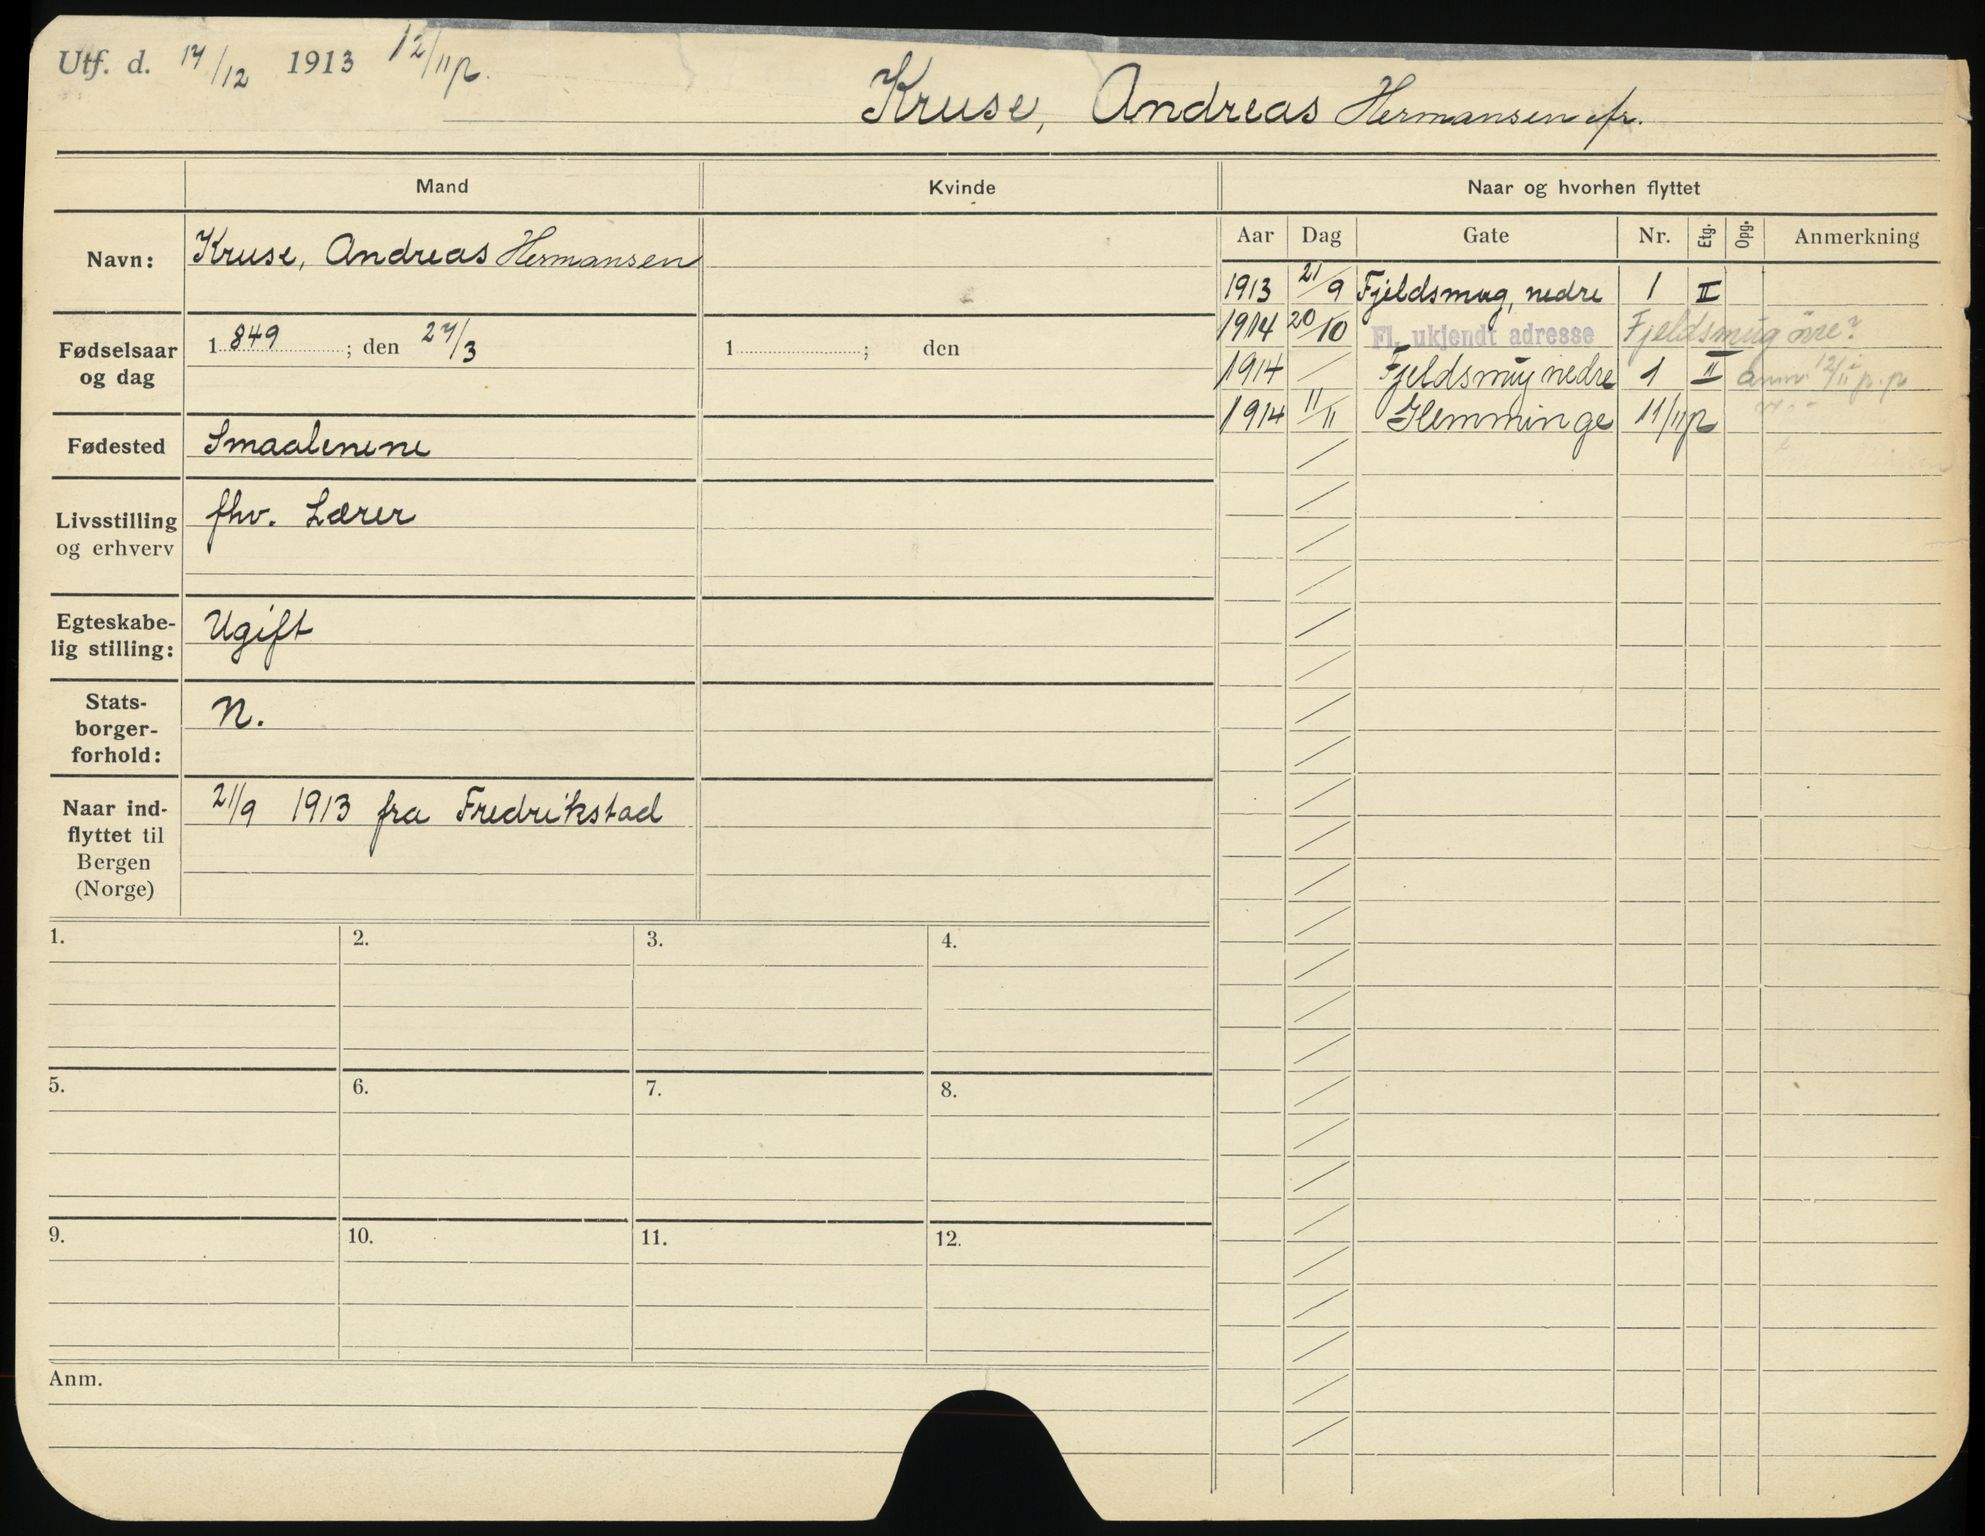 Utf. d. 17/12 1913 12/11 p.
Kruse, Andreas Hermansen fr.
Mand Kvinde Naar og hvorhen flyttet
Aar Dag Gate Nr. Etg. Opg. Anmerkning
Navn: Kruse, Andreas Hermansen
1913 21/9 Fjeldsmug, nedre 1 II
1914 20/10 Fl. ukjendt adresse Fjeldsmug øvre?
Fødselsaar og dag 1849; den 27/3 1 ; den
1914 Fjeldsmug nedre 1 II anm. 12/11 p.p
1914 11/11 Glemminge 11/11 p
Fødested Smaalenene
Livsstilling og erhverv fhv. Lærer
Egteskabe-
lig stilling: Ugift
Stats-
borger-
forhold: N.
Naar ind-
flyttet til
Bergen
(Norge) 21/9 1913 fra Fredrikstad
1. 2. 3. 4.
5. 6. 7. 8.
9. 10. 11. 12.
Anm.